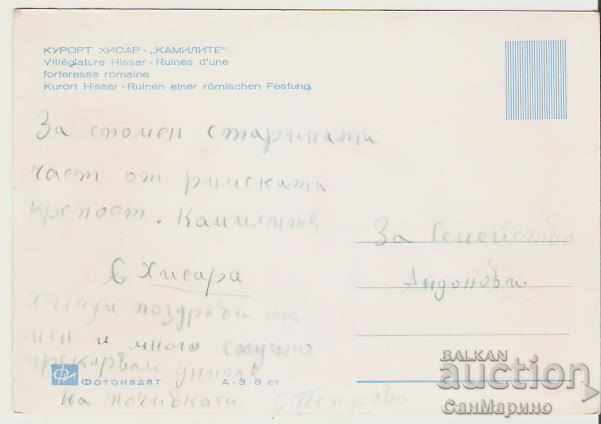 КУРОРТ ХИСАР - „КАМИЛИТЕ"
Villégiature Hissar - Ruines d'une
forteresse romaine
Kurort Hissar - Ruinen einer römischen Festung
За спомен старината
част от римската
крепост. Камилите
С Хисара
поздрави от
мен и много
прекарвам
на почивката С. Петрова
За Семейство
Андонови.
Фотоиздат А-3-8 ст
BALKAN
auction
СанМарино